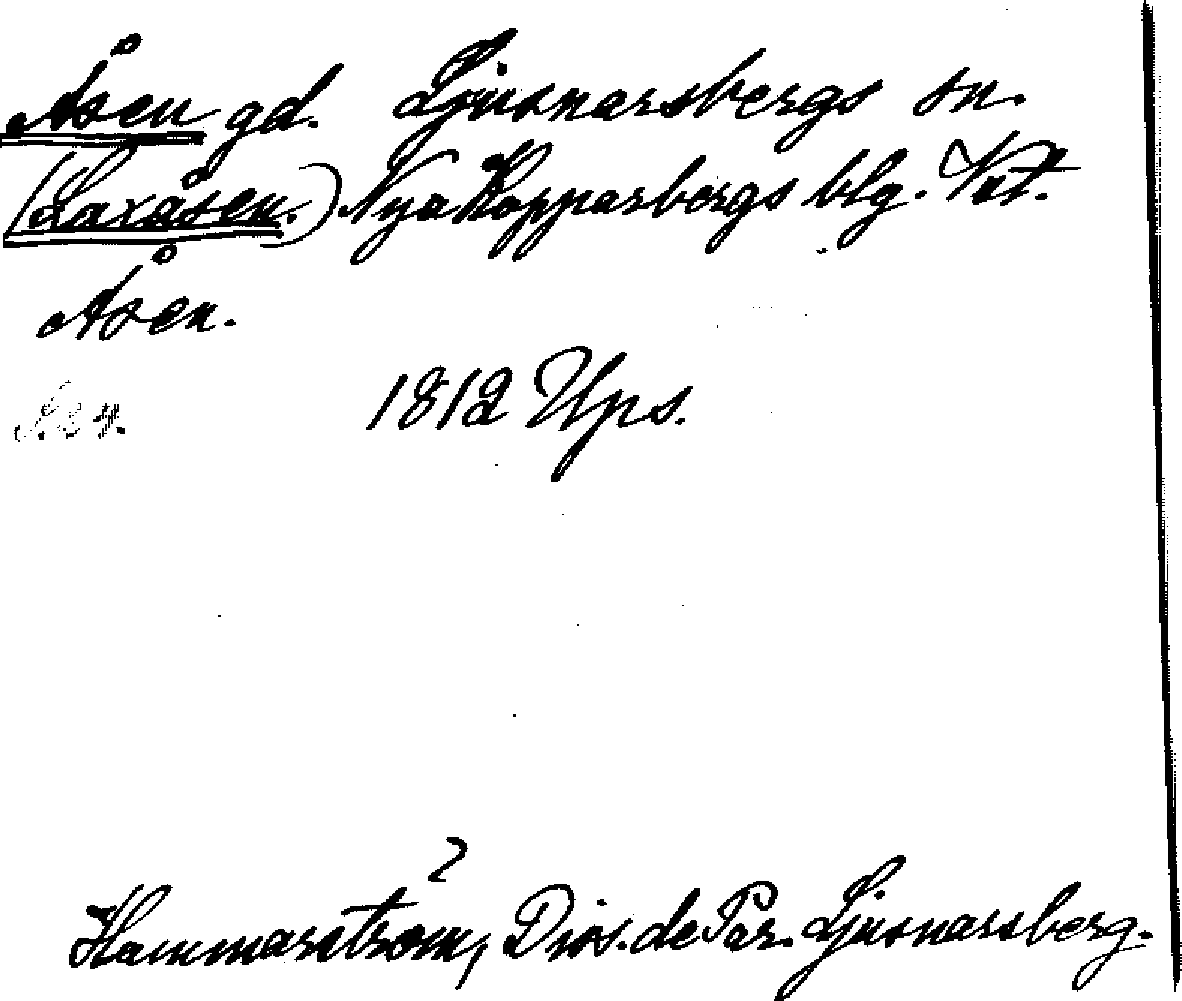 Åsen gd. Ljusnarsbergs sn.
(Laxåsen.) Nya Kopparbergs blg. Vstm.
Åsen.
1812 Ups.
2
Hammarström, Diss. de Par. Ljusnarsberg.